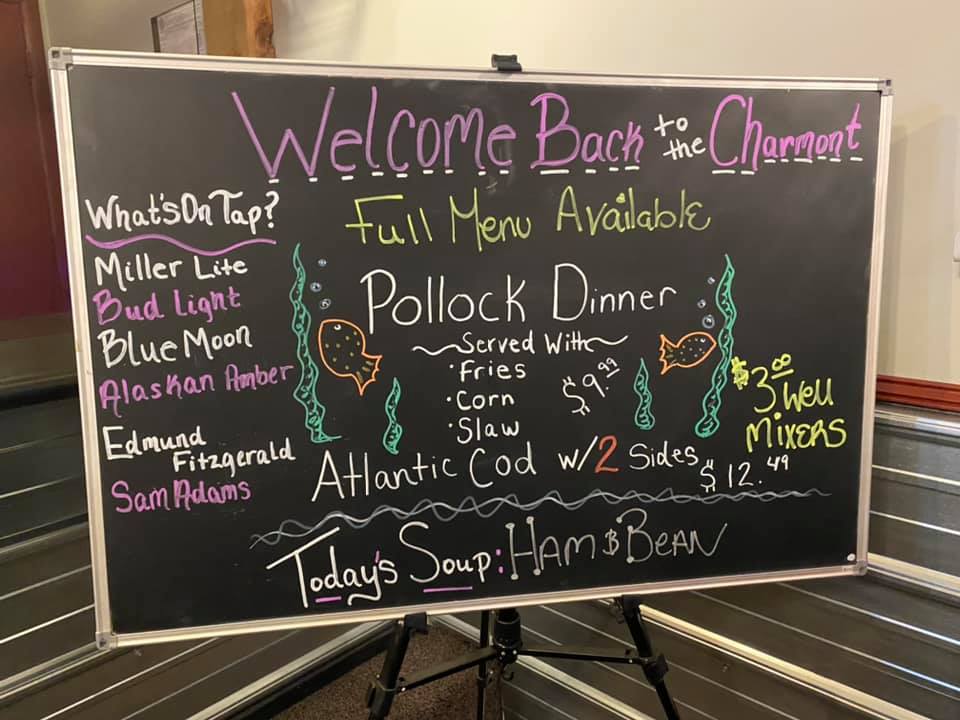 Welcome Back to the Charmont
Full Menu Available
What's On Tap?
Miller Lite
Bud Light
Blue Moon
Alaskan Amber
Edmund
Fitzgerald
Sam Adams
Pollock Dinner
Served With
·Fries
·Corn
·Slaw
$9.99
$3.00 Well
Mixers
Atlantic Cod w/2 Sides
$12.49
Today's Soup: Ham & Bean